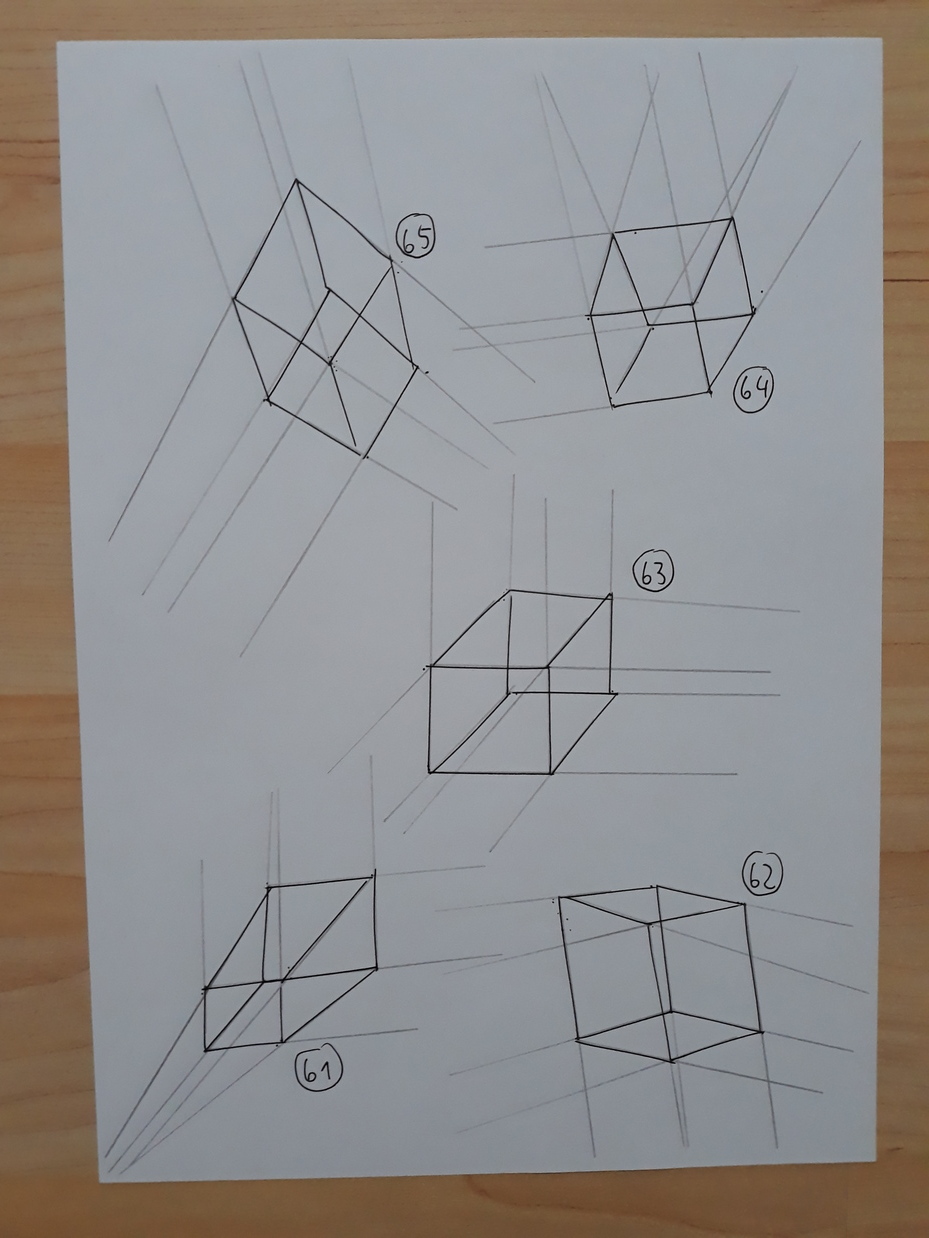 65
64
63
62
61